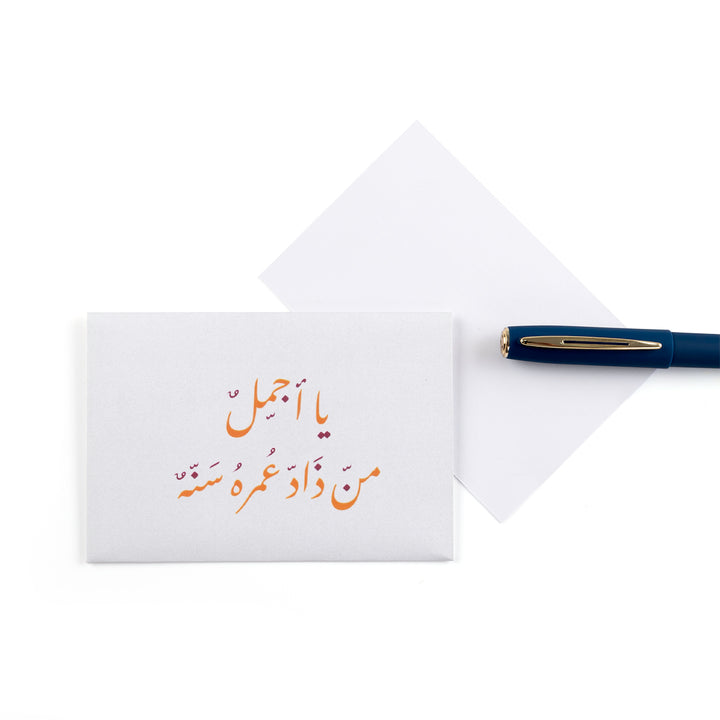 يا أجمِّلٌ
منّ ذَادّ عُمرهُ سَنّهٌ